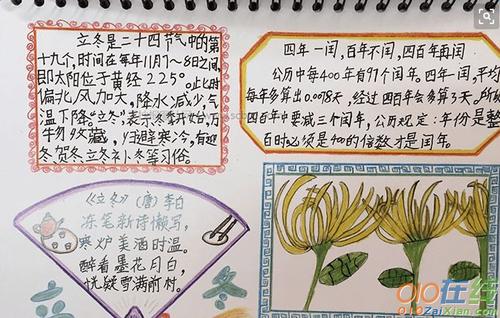 立冬是二十四节气中的第
十九个,时间在每年11月7~8日之间,
即太阳位于黄经225°。此时
偏北风加大,降水减少,气
温下降“立冬”表示冬季开始,万
物收藏,归避寒冷,有迎
冬、贺冬、立冬补冬等习俗
四年一闰,百年不闰,四百年再闰
公历中每400年有97个闰年。四年一闰,平均
每年多算出0.0078天,经过四百年会多算3天。所以
四百年中要减三个闰年,公历规定:年份是整
百时必须是400的倍数才是闰年。
《立冬》(唐)李白
冻笔新诗懒写,
寒炉美酒时温。
醉看墨花月白,
恍疑雪满前村。
010在线
010ZaiXian.com